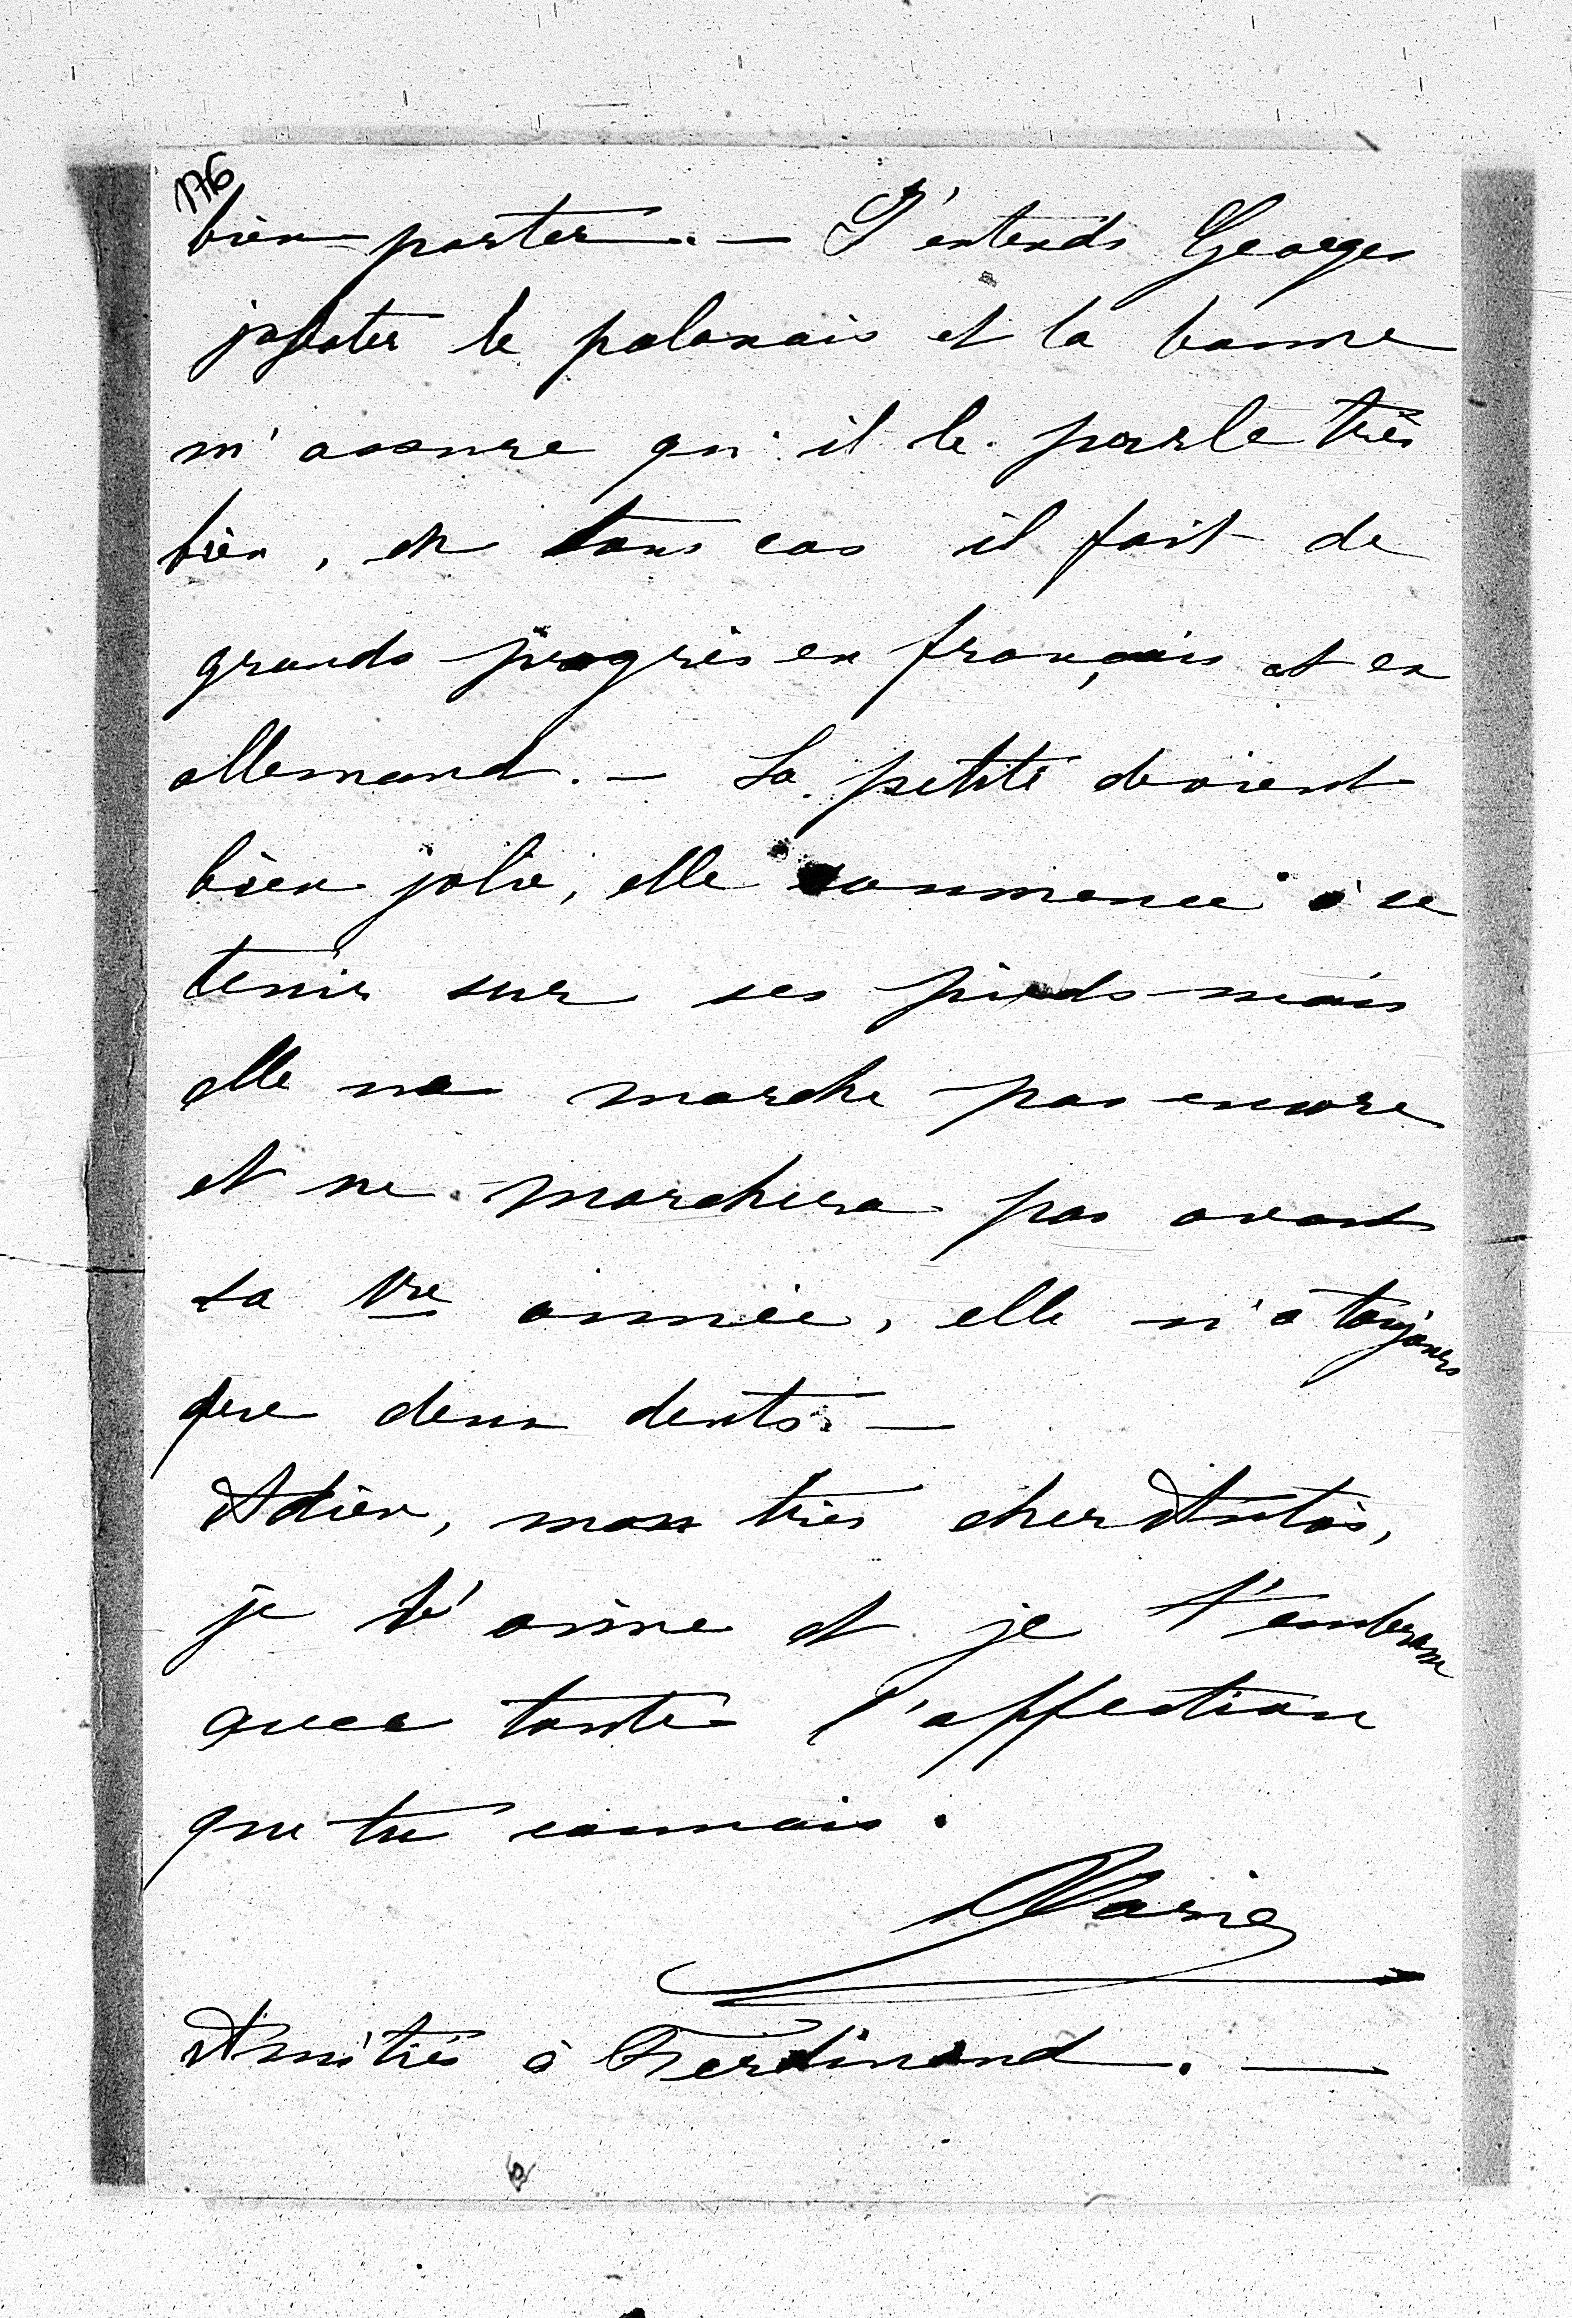 176
bien porter. — J'entends Georges
jaboter le polonais et la bonne
m'assure qu'il le parle très
bien, en tous cas il fait de
grands progrès en français et en
allemand. — La petite devient
bien jolie, elle commence à se
tenir sur ses pieds mais
elle ne marche pas encore
et ne marchera pas avant
sa 1re année, elle n'a toujours
que deux dents. —
Adieu, mon très cher Antos,
je t'aime et je t'embrasse
avec toute l'affection
que tu connais.
Marie
Amitiés à Ferdinand. —